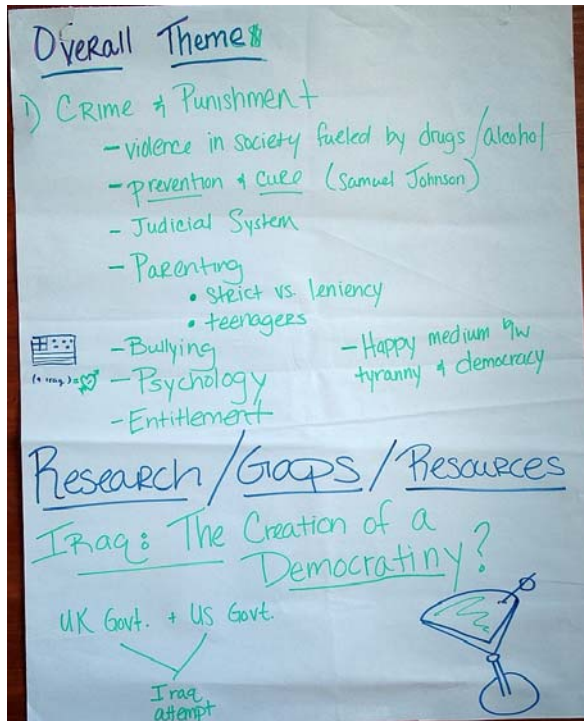 Overall Themes
1) Crime & Punishment
- violence in society fueled by drugs/alcohol
- prevention & cure (Samuel Johnson)
- Judicial System
- Parenting
• strict vs. leniency
• teenagers
- Bullying
- Psychology
- Entitlement
- Happy medium b/w
tyranny & democracy
Research/Gaps/Resources
Iraq: The Creation of a
Democratiny?
UK Govt. + US Govt.
Iraq
attempt